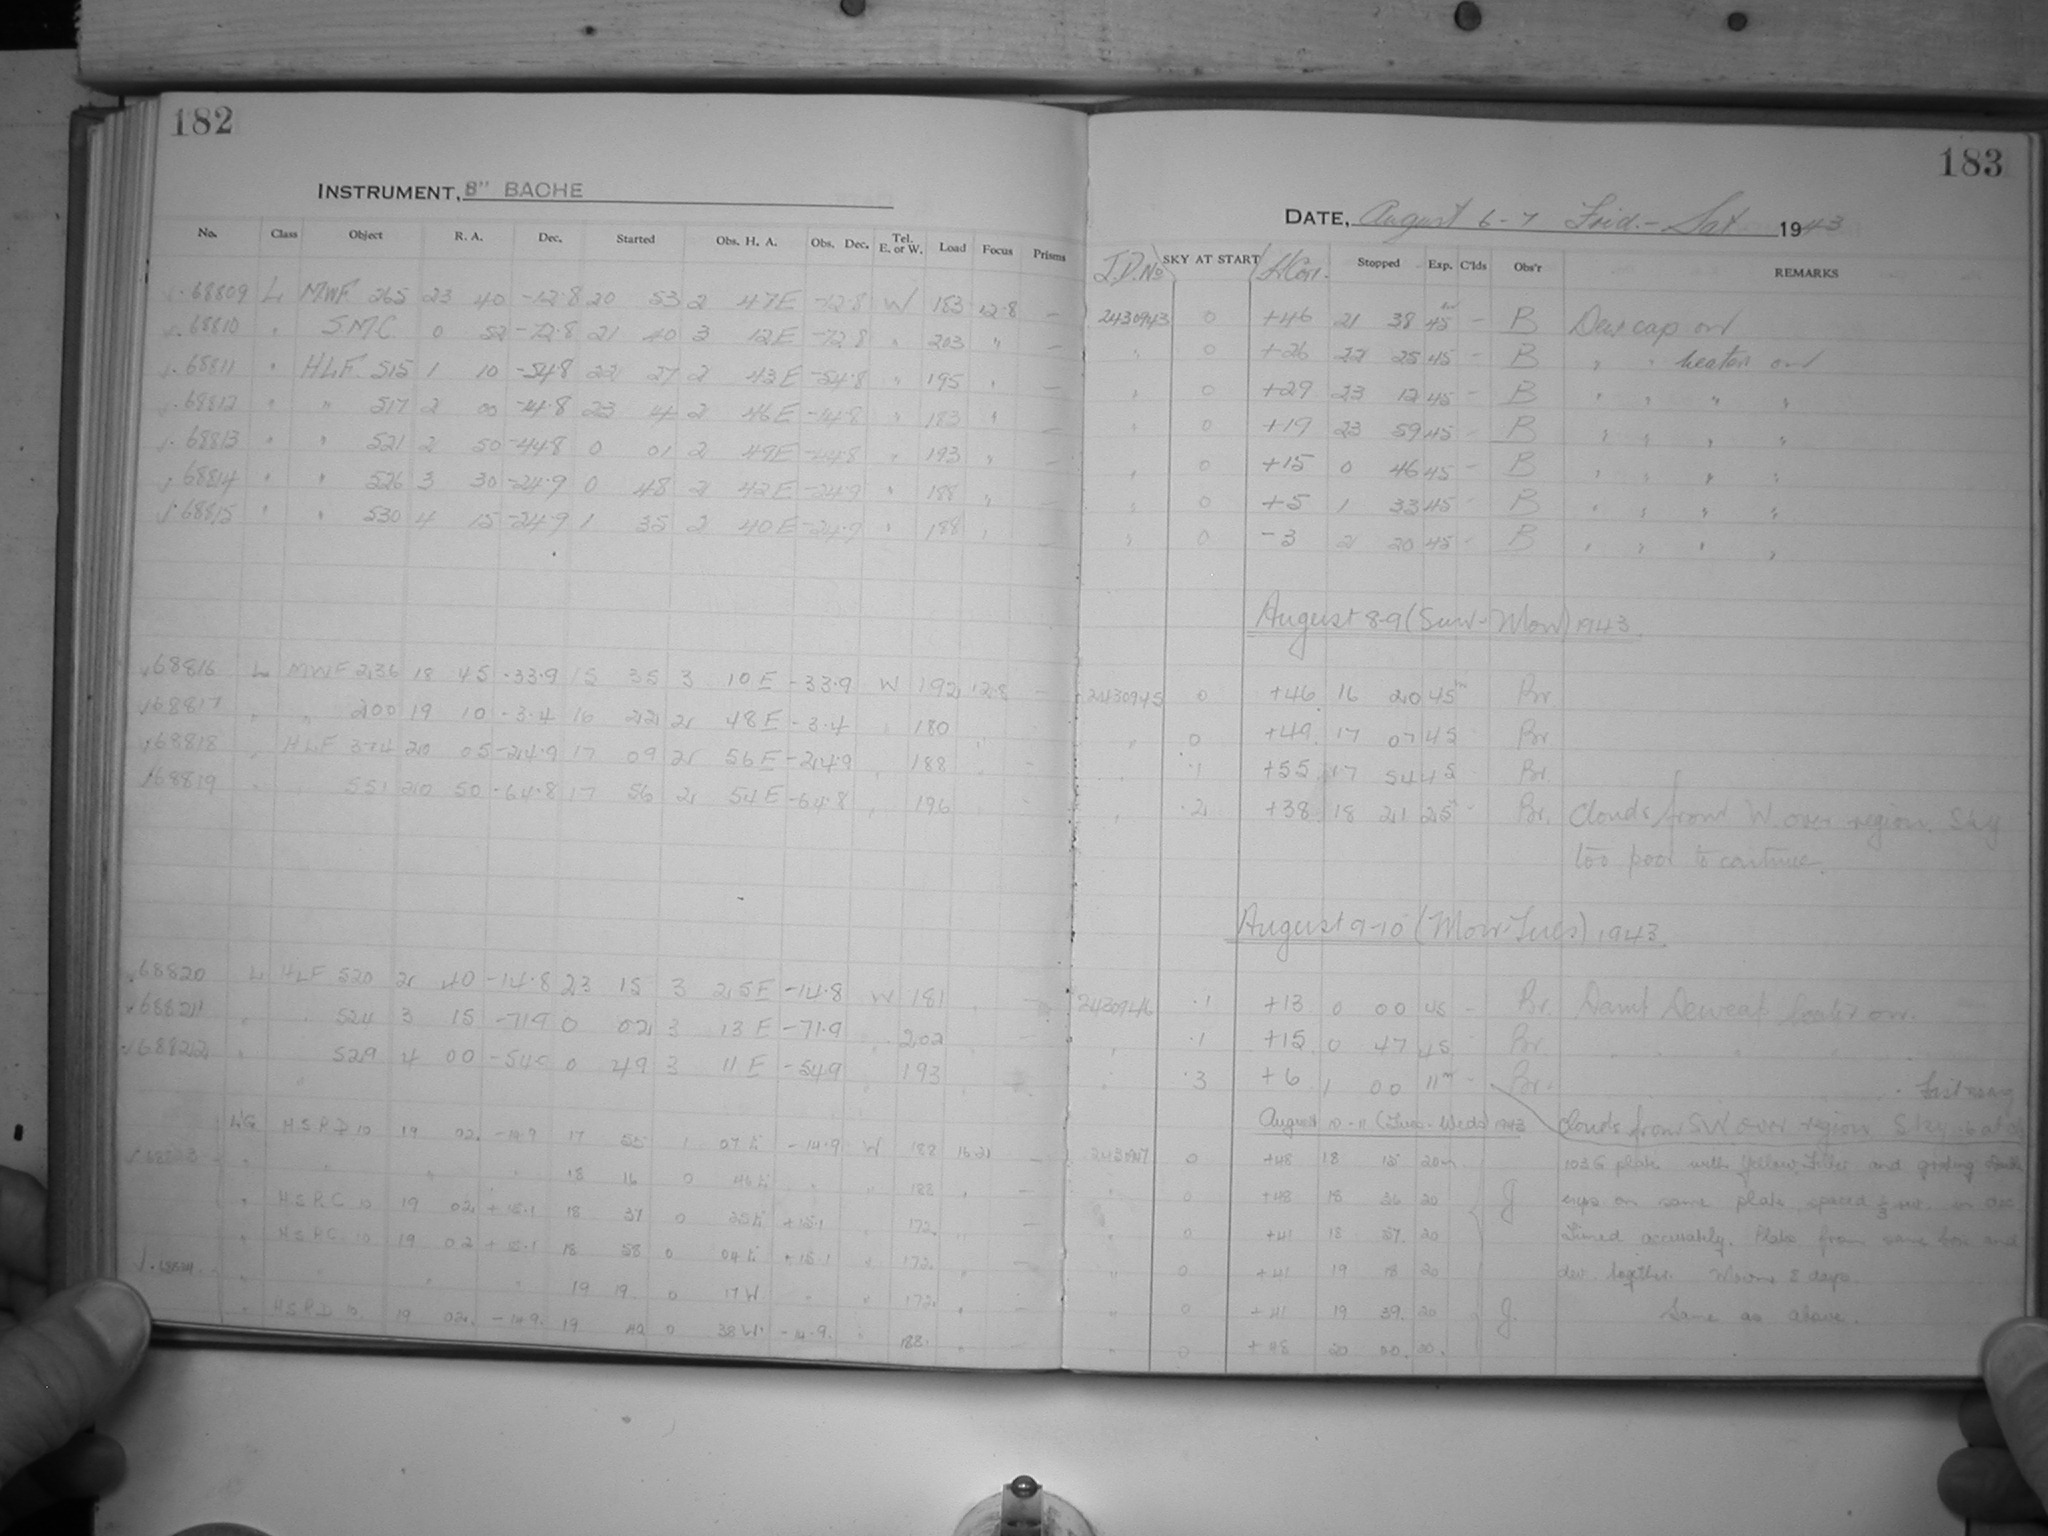 182
INSTRUMENT, 8" BACHE
No. Class Object R. A. Dec. Started Obs. H. A. Obs. Dec. Tel. E. or W. Load Focus Prisms
68809 L MWF 265 23 40 -12.8 20 53 2 47E -12.8 W 183 12.8 -
68810 " S.M.C. 0 52 -72.8 21 40 3 12E -72.8 " 203 " -
68811 " HLF 515 1 10 -54.8 22 27 2 43E -54.8 " 195 " -
68812 " " 517 2 00 -4.8 23 4 2 46E -4.8 " 183 "
68813 " " 521 2 50 -44.8 0 01 2 49E -44.8 " 193 " -
68814 " " 526 3 30 -24.9 0 48 2 42E -24.9 " 188 " -
68815 " " 530 4 15 -24.9 1 35 2 40E -24.9 " 188 " -
68816 L MWF 236 18 45 -33.9 15 35 3 10E -33.9 W 192 12.8 -
68817 " " 200 19 10 -3.4 16 22 2 48E -3.4 180
68818 " HLF 374 20 05 -24.9 17 09 2 56E -24.9 " 188 " -
68819 " " 551 20 50 -64.8 17 56 2 54E -64.8 " 196 -
68820 L HLF 520 2 40 -14.8 23 15 3 25E -14.8 W 181 " -
68821 " " 524 3 15 -71.9 0 02 3 13E -71.9 " 202 -
68822 " 529 4 00 0 49 3 11E -54.9 193
HSPD 10 19 02 -14.9 17 55 1 07E -14.9 W 188 -
" " " 18 16 0 46E " " 188 " -
" HSPC 10 19 02 +15.1 18 37 0 25E +15.1 " 172 " -
" HSPC 10 19 02 +15.1 18 58 0 04E +15.1 " 172 " -
" " " 19 19 0 17W " " 172 " -
" HSPD 10 19 02 -14.9 19 40 0 38W -14.9 " 188 " -
183
DATE, August 6-7 Frid.-Sat 1943
J.D. No SKY AT START Stopped Exp. C'lds Obs'r REMARKS
2430943 0 +46 21 38 45m - B Dew cap on
" 0 +26 22 25 45 - B " " heater on
" 0 +29 23 12 45 - B " " " "
" 0 +19 23 59 45 - B " " " "
" 0 +15 0 46 45 - B " " " "
" 0 +5 1 33 45 - B " " " "
" 0 -3 2 20 45 - B " " " "
August 8-9 (Sun-Mon) 1943
2430945 0 +46 16 20 45m Br
" 0 +49 17 07 45 Br
" .1 +55 17 54 45 Br.
" .2 +38 18 21 25 - Br. Clouds from W over region. Sky
too poor to continue.
August 9-10 (Mon-Tues) 1943
2430946 .1 +13 0 00 45 - Br. Damp Dewcap heater on.
" .1 +15 0 47 45 Br. " " " "
" .3 +6 1 00 11m - Br.
August 10-11 (Tues-Weds) 1943 Clouds from SW over region Sky
0 +48 18 15 20m 103G plate with Yellow Filter and grating
" 0 +48 18 36 20 J exps on same plate, spaced in dec
" 0 +41 18 57 20 Timed accurately. Plates from same box and
" 0 +41 19 18 20 dev. together. Moon 8 days.
" 0 +41 19 39 20 J. Same as above.
" 0 +48 20 00 20